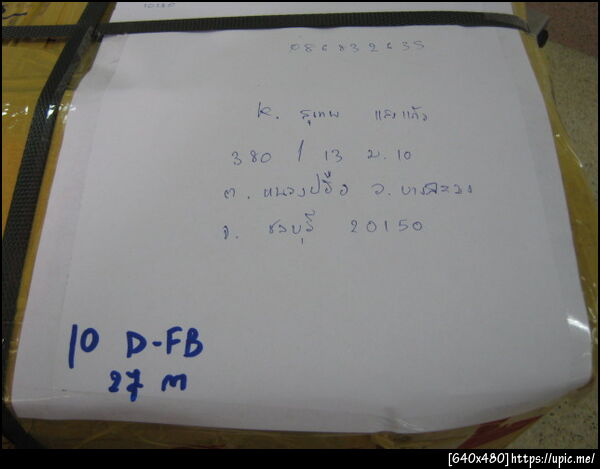 10160
086832635
K. สุเทพ แสงแก้ว
380 / 13 ม.10
ต. หนองปรือ อ. บางละมุง
จ. ชลบุรี 20150
10 D-FB
27 m
[640x480]https://upic.me/